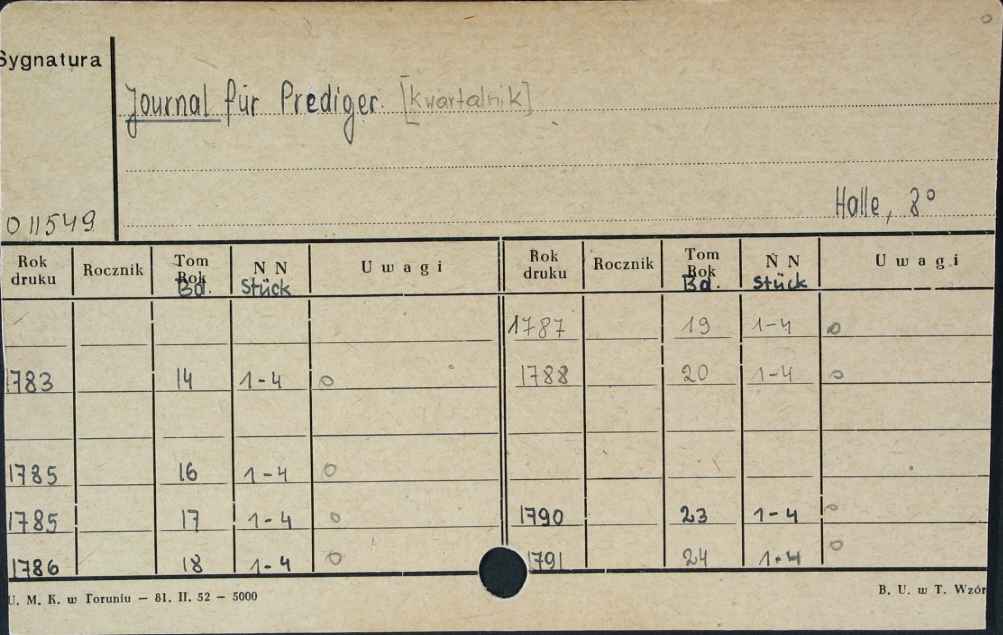 Sygnatura
Journal für Prediger. [kwartalnik]
Halle, 8°
011549
Rok druku Rocznik Tom Rok Bd. N N Stück Uwagi Rok druku Rocznik Tom Rok Bd. N N Stück Uwagi
1787 19 1-4 o
1783 14 1-4 o 1788 20 1-4 o
1785 16 1-4 o
1785 17 1-4 o 1790 23 1-4 o
1786 18 1-4 o 1791 24 1-4 o
U. M. K. w Toruniu — 81. II. 52 — 5000 B. U. w T. Wzór